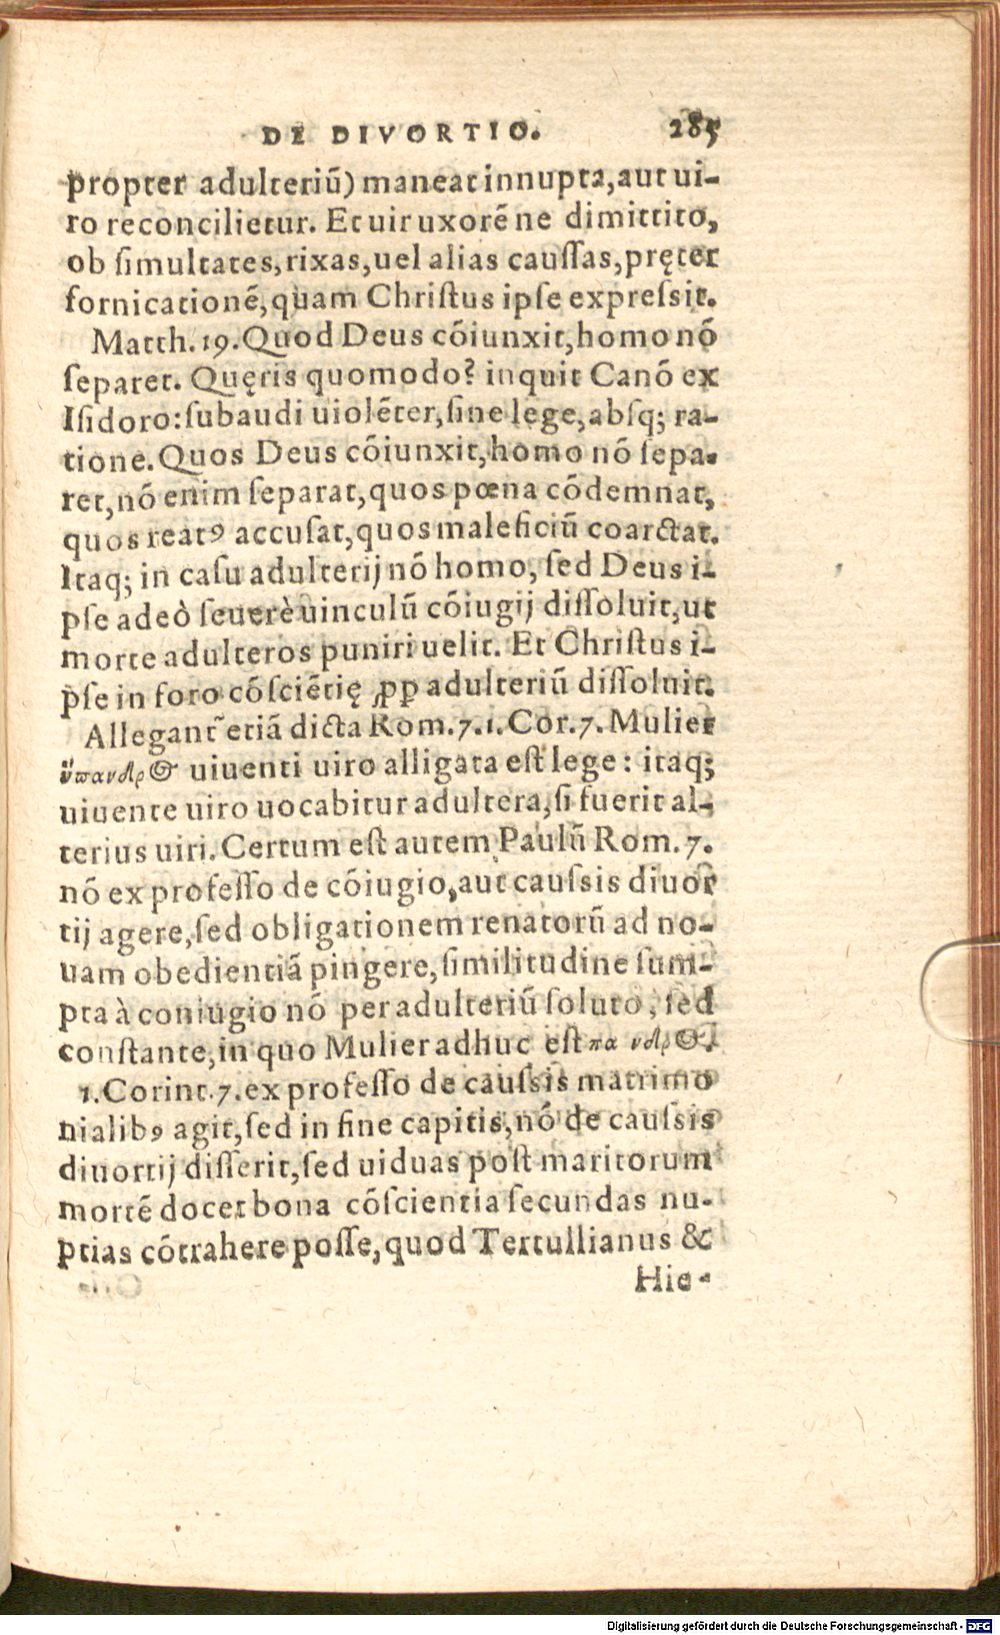 DE DIVORTIO. 285
propter adulteriũ) maneat innupta, aut ui-
ro reconcilietur. Et uir uxorẽ ne dimittito,
ob ſimultates, rixas, uel alias cauſſas, pręter
fornicationẽ, quam Chriſtus ipſe expreſsit.
Matth. 19. Quod Deus cõiunxit, homo nõ
ſeparet. Quęris quomodo? inquit Canõ ex
Iſidoro: ſubaudi uiolẽter, ſine lege, abſq; ra-
tione. Quos Deus cõiunxit, homo nõ ſepa-
ret, nõ enim ſeparat, quos pœna cõdemnat,
quos reatꝰ accuſat, quos maleficiũ coarctat.
Itaq; in caſu adulterij nõ homo, ſed Deus i-
pſe adeò ſeuerè uinculũ cõiugij diſſoluit, ut
morte adulteros puniri uelit. Et Chriſtus i-
pſe in foro cõſciẽtię ꝓꝑ adulteriũ diſſoluit.
Allegant᷑ etiã dicta Rom. 7. 1. Cor. 7. Mulier
ὕπανδρ@ uiuenti uiro alligata eſt lege: itaq;
uiuente uiro uocabitur adultera, ſi fuerit al-
terius uiri. Certum eſt autem Paulũ Rom. 7.
nõ ex profeſſo de cõiugio, aut cauſsis diuor
tij agere, ſed obligationem renatorũ ad no-
uam obedientiã pingere, ſimilitudine ſum-
pta à coniugio nõ per adulteriũ ſoluto, ſed
conſtante, in quo Mulier adhuc eſt πα νδρ@.
1. Corint. 7. ex profeſſo de cauſsis matrimo
nialibꝰ agit, ſed in fine capitis, nõ de cauſsis
diuortij diſſerit, ſed uiduas poſt maritorum
mortẽ docet bona cõſcientia ſecundas nu-
ptias cõtrahere poſſe, quod Tertullianus &
Hie-
Digitalisierung gefördert durch die Deutsche Forschungsgemeinschaft - DFG